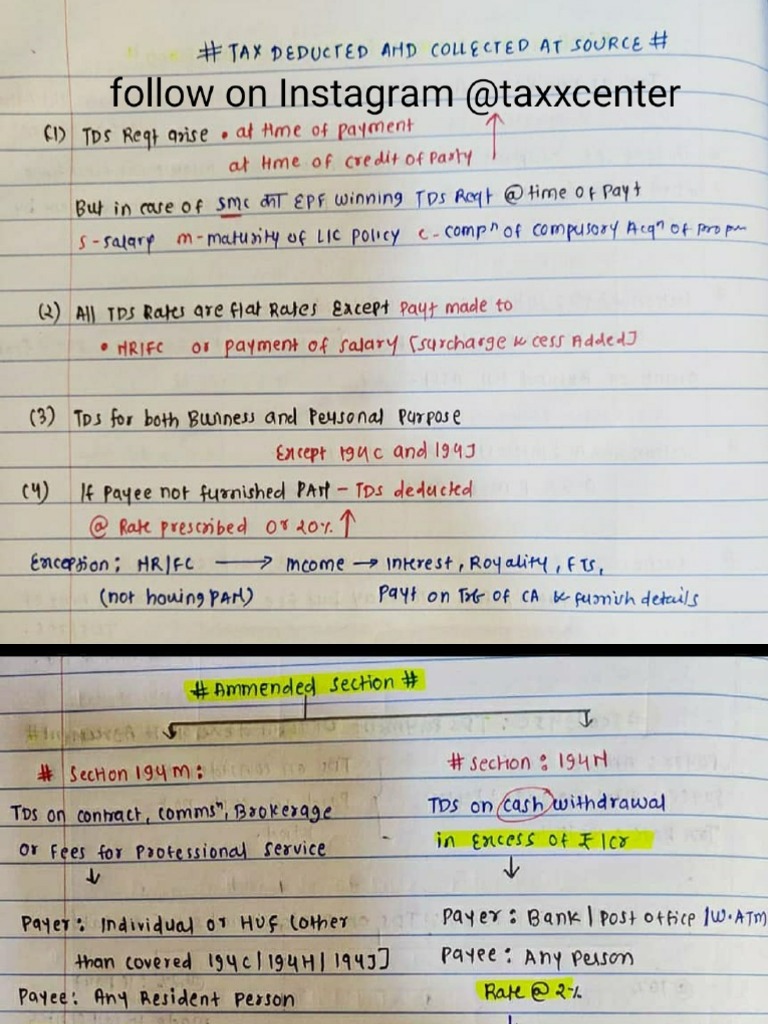 # TAX DEDUCTED AND COLLECTED AT SOURCE #
follow on Instagram @taxxcenter
(1) TDS Reqt arise • at time of payment
at time of credit of Party
But in case of SMC का EPF winning TDS Reqt @ time of Payt
S-salary M-maturity of LIC policy C-compn of compusory Acqn of propm
(2) All TDS Rates are flat Rates Except Payt made to
• NR/FC or payment of salary [surcharge & cess Added]
(3) TDS for both Business and Personal Purpose
Except 194C and 194J
(4) If Payee not furnished PAN - TDS deducted
@ Rate prescribed or 20% ↑
Exception: NR/FC → Income → Interest, Royality, FTS,
(not having PAN) Payt on Trf of CA & furnish details
# Ammended Section #
# Section 194M:
TDS on contract, commsn, Brokerage
or Fees for Professional Service
↓
Payer: Individual or HUF (other
than covered 194C/194H/194J]
Payee: Any Resident Person
# Section: 194N
TDS on cash withdrawal
in Excess of ₹ 1cr
↓
Payer: Bank/Post office/W.ATM
Payee: Any Person
Rate @ 2%